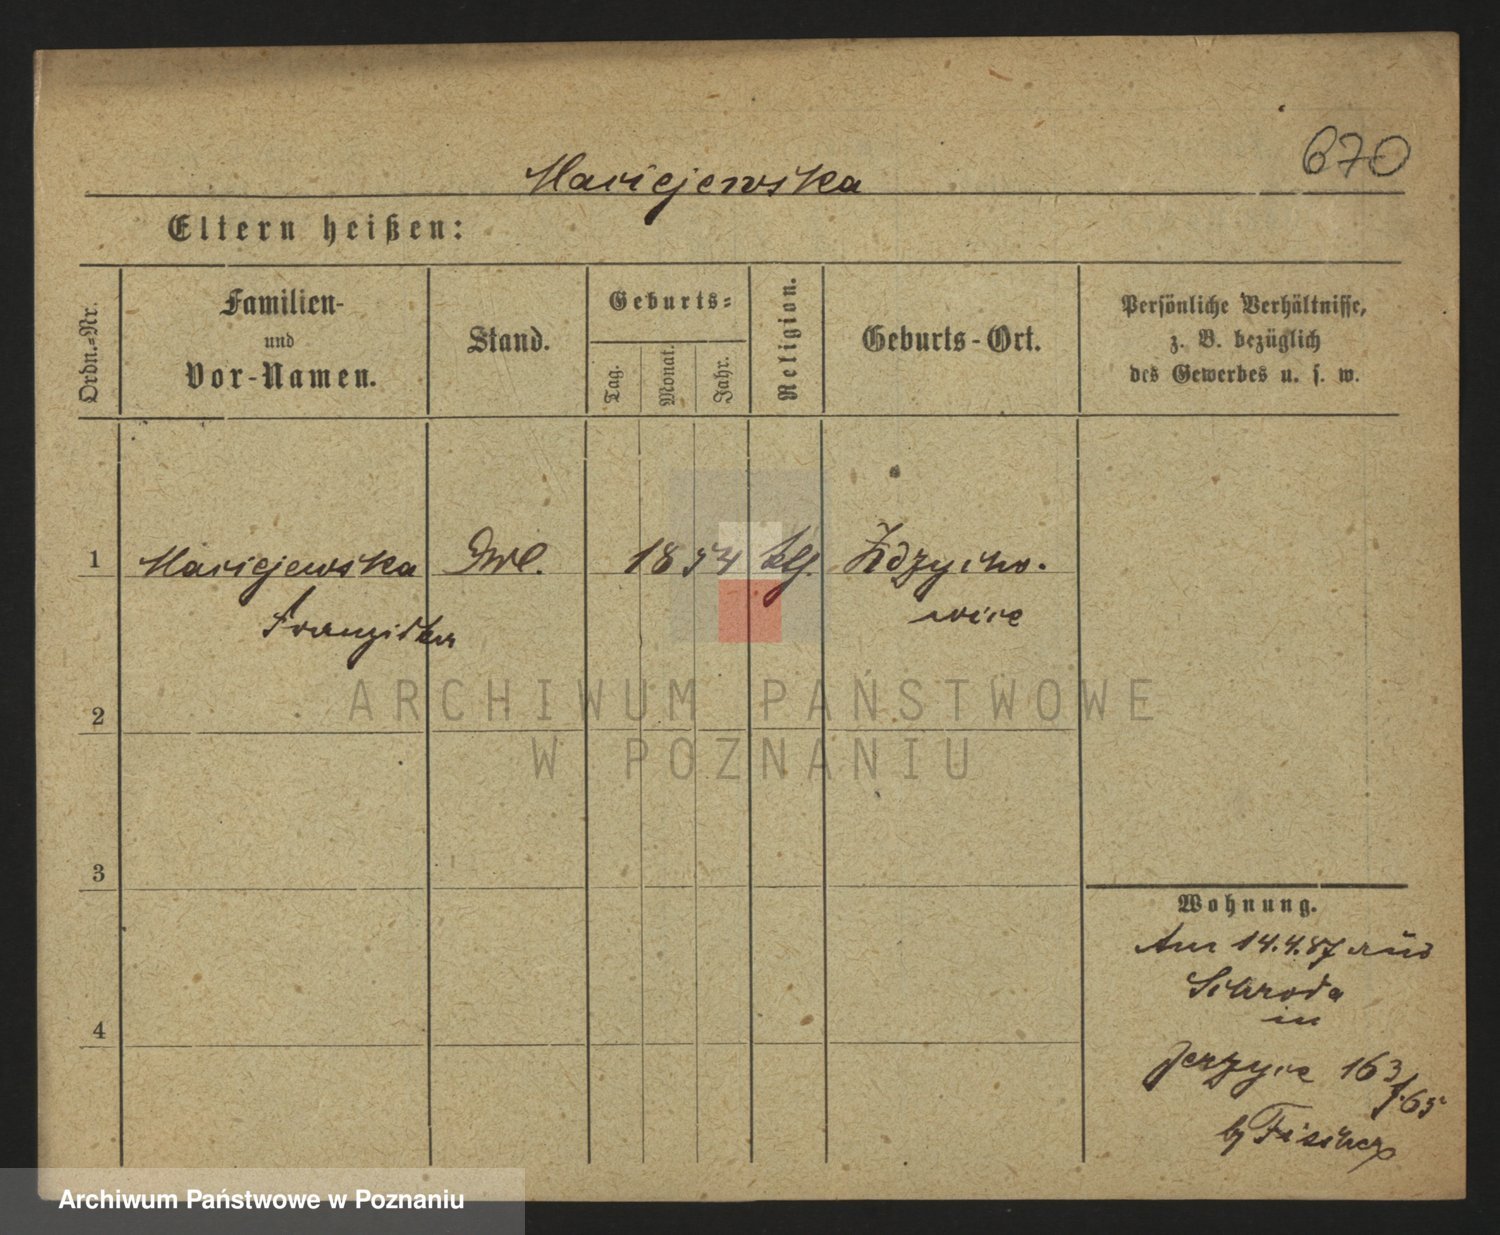 670
Maciejewska
Eltern heißen:
Ordn.-Nr.
Familien-
und
Vor-Namen.
Stand.
Geburts-
Tag.
Monat.
Jahr.
Religion.
Geburts-Ort.
Persönliche Verhältnisse,
z. B. bezüglich
des Gewerbes u. s. w.
1 Maciejewska 1854 Zdzycho-
Franziska wice
2
3
4
Wohnung.
Am 14.4.87 aus
Schroda
in
Jerzyce 163/65
by Fischer
ARCHIWUM PAŃSTWOWE
W POZNANIU
Archiwum Państwowe w Poznaniu